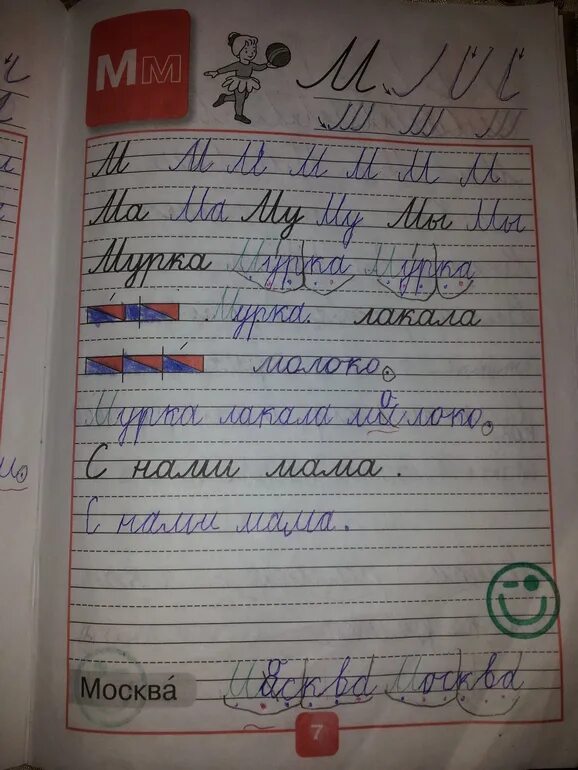 Мм М
М М М М М М М
Ма Ма Му Му Мы Мы
Мурка Мурка Мурка
Мурка. лакала
молоко.
Мурка лакала молоко.
С нами мама.
С нами мама.
Москва́ Москва Москва
7